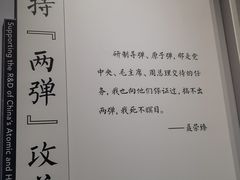 持『两弹』攻
Supporting the R&D of China's Atomic and H
研制导弹、原子弹，都是党
中央、毛主席、周总理交待的任
务，我也向他们保证过，搞不出
两弹，我死不瞑目。
——聂荣臻